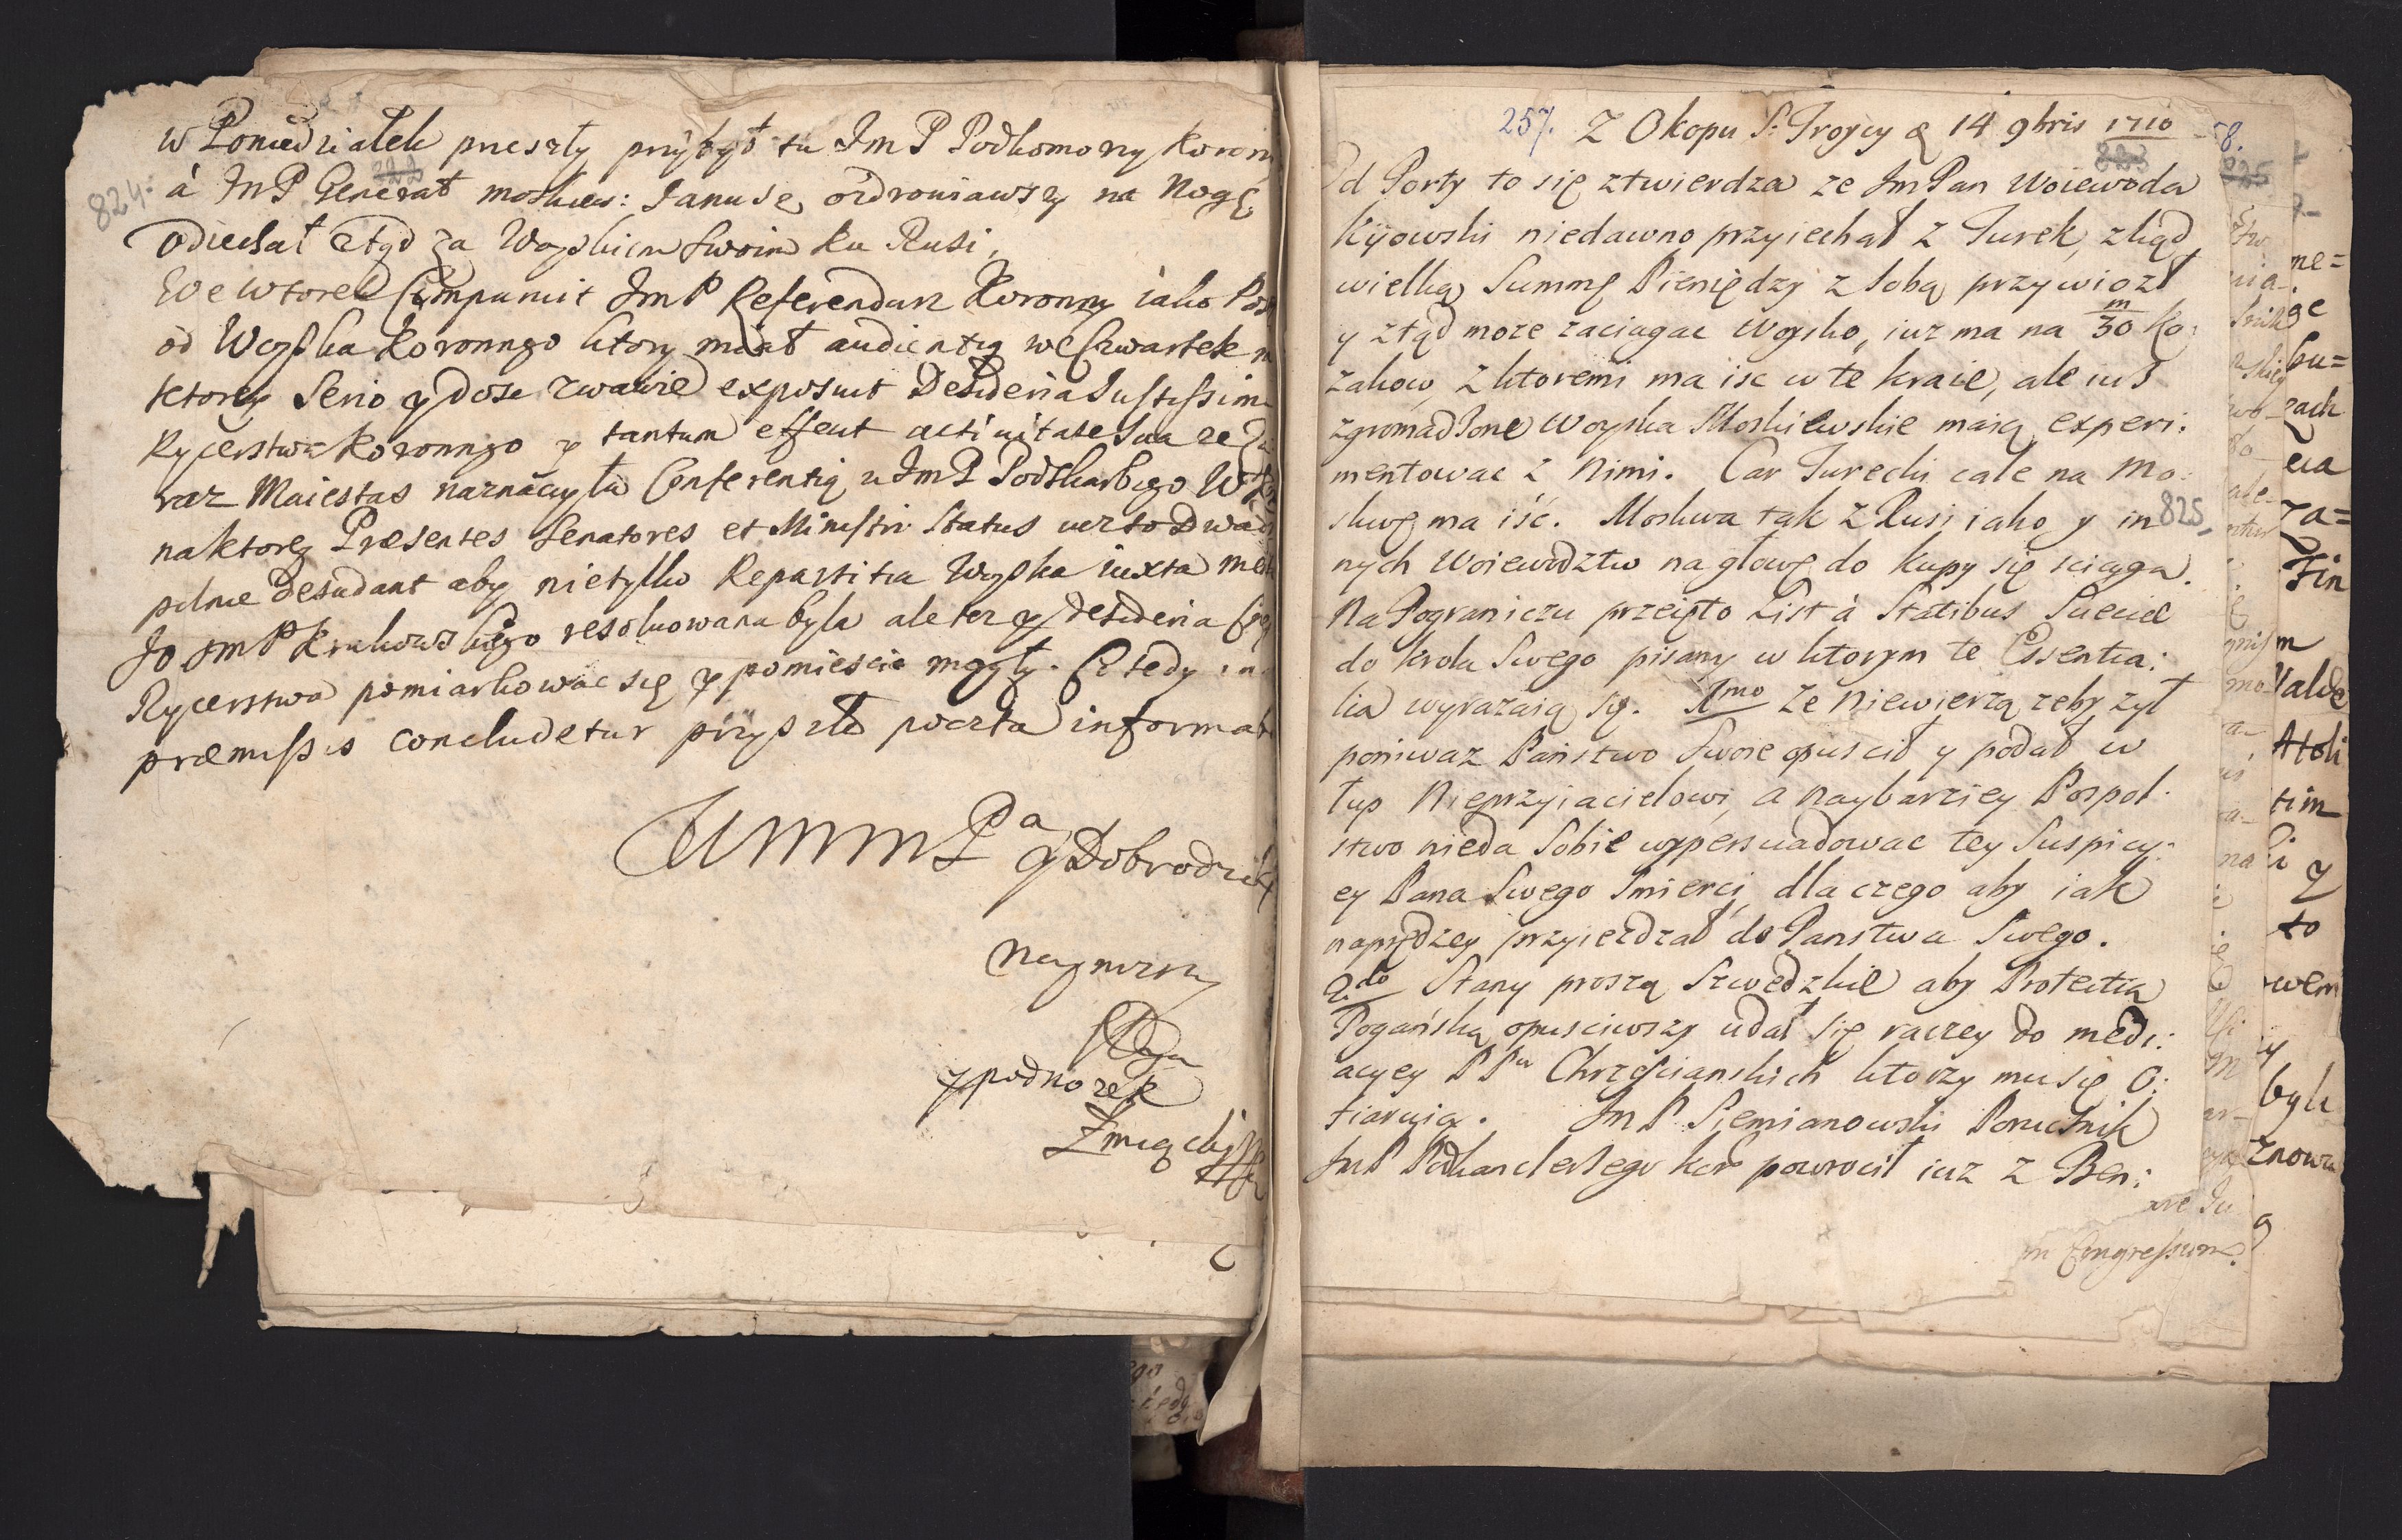 w Poniedziałek przeszły przybył tu Jm P Podkomorzy Koron
824.
222
á Jm P Generał moskiew: Janusę ozdrowiawszy na Nogę
odiechał ztąd za Woyskiem Swoim ku Rusi,
We wtorek Comparuit Jm P Referendarz Koronny iako Pos
od Woyska Koronngo ktory miał audientią we Czwartek
ktorey Serio y dose zwawie exposuit Desideria Justissima
Rycerstwa Koronngo y tantum effecit activitate sua ze
raz Maiestas naznaczyła Conferentią u Jm P Podskarbiego
na ktorey Præsentes Senatores et Ministri Status
pilnie Desudant aby nietylko Repartitia Woyska iuxta
Jo Jm P Krakowskiego resoluowana była ale tez y desideria
Rycerstwa pomiarkowac się y pomiescic mogły. Co tedy in
præmissis concludetur przyszłą poczta informab
UMMM Pa
y Dobrodzie
Nayniższy
Sługa
y podnozek
257. Z Okopu S: Troycy d 14 9bris 1710
58.
223
825
Od Porty to się ztwierdza ze Jm Pan Woiewoda
Kijowski niedawno przyiechał z Turek, zkąd
wielką Summę Pieniędzy z sobą przywiozł
y ztąd moze zaciagac Woysko, iuz ma na 30 m Ko:
zakow, z ktoremi ma isc w te kraie, ale iusz
zgromadzone Woyska Moskiewskie maią experi:
mentowac z nimi. Car Turecki cale na Mo:
skwę ma iść. Moskwa tak z Rusi iako y in
825.
nych Woiewodztw na głowę do kupy się sciąga.
Na Pograniczu przeięto List á Statibus Sueciæ
do krola Swego pisany w ktorym te Essentia:
lia wyrazaią się. 1mo Ze niewierzą zeby zył
poniwaz Państwo Swoie opuscił y podał w
łup Nieprzyiacielowi, a naybarziey Pospol:
stwo nieda Sobie wypersuadowac tey Suspicy:
ey Pana Swego Smierci, dla czego aby iak
naprędzey przyiezdzał do Panstwa Swego.
2do Stany proszą Szwedzkie aby Protectią
Pogańską opusciwszy udał się raczey do medi:
acyey PPw Chrzescianskich ktorzy mu się O:
fiaruią. Jm P Siemianowski Porucznik
Jm P Podkanclerzego kor powrocił iuz z Ben:
in Congressum
me=
ge
bu=
zach
cia
za=
Fin
m
Valde
Atoli
tim
i y
to
wem
y
byli
Znowu